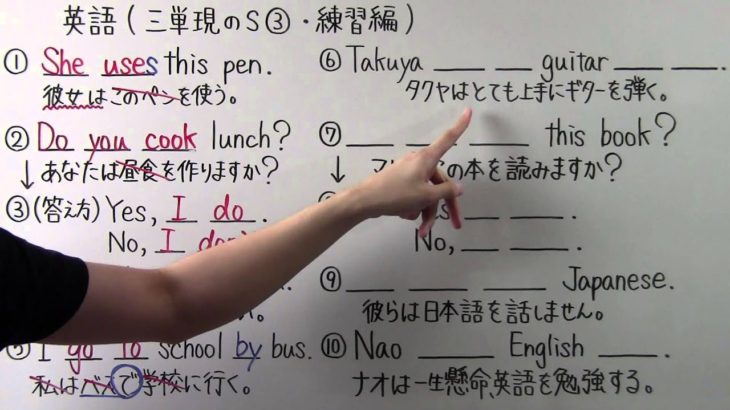 英語(三単現のS③・練習編)
① She uses this pen.
彼女はこのペンを使う。
② Do you cook lunch?
↓ あなたは昼食を作りますか?
③(答え方) Yes, I do.
No, I don't
⑤ I go to school by bus.
私はバスで学校に行く。
⑥ Takuya ____ __ guitar ____ ____.
タクヤはとても上手にギターを弾く。
⑦ ____ ____ ____ this book?
↓ の本を読みますか?
____ ____.
No, ____ ____.
⑨ ____ ____ ____ Japanese.
彼らは日本語を話しません。
⑩ Nao ____ English ____.
ナオは一生懸命英語を勉強する。